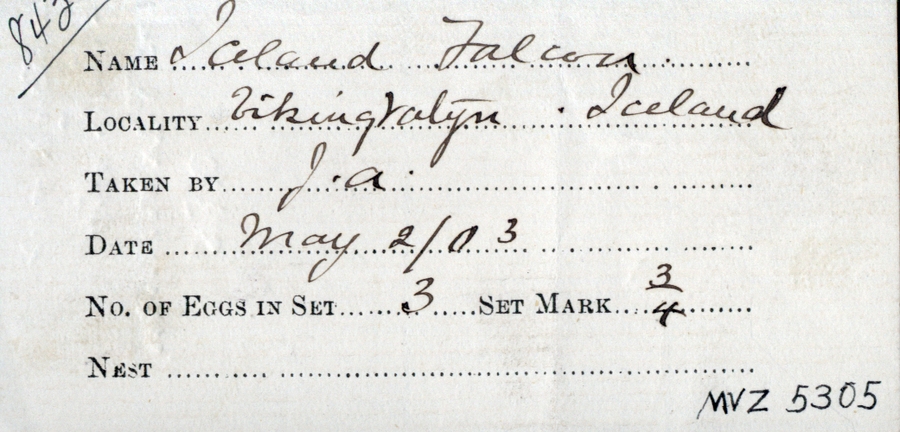 842
NAME Iceland Falcon.
LOCALITY Iceland
TAKEN BY J. A.
DATE May 2/03
NO. OF EGGS IN SET 3 SET MARK 3/4
NEST
MVZ 5305